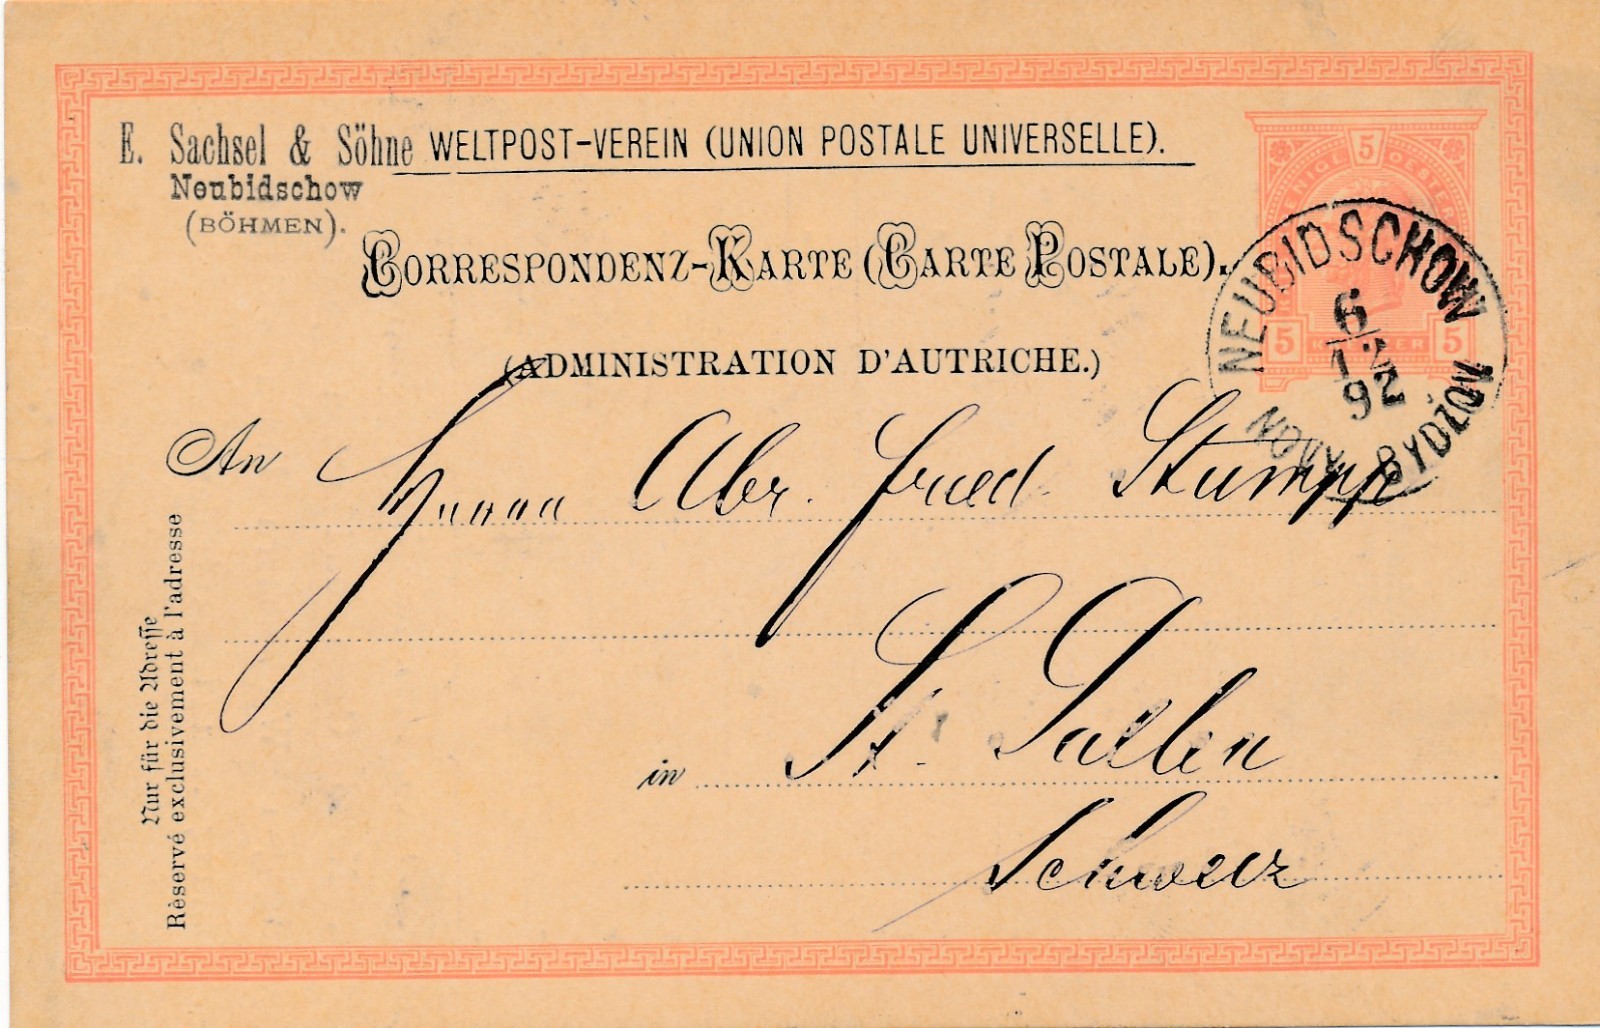 E. Sachsel & Söhne
Neubidschow
(BÖHMEN).
WELTPOST-VEREIN (UNION POSTALE UNIVERSELLE).
CORRESPONDENZ-KARTE (CARTE POSTALE).
(ADMINISTRATION D'AUTRICHE.)
5
5 5
NEUBIDSCHOW
6
12
92
NOVÝ BYDŽOV
An Herrn Abr. Fried. Stumpp
in St. Gallen
Schweiz
Nur für die Adresse
Rèservé exclusivement à l'adresse